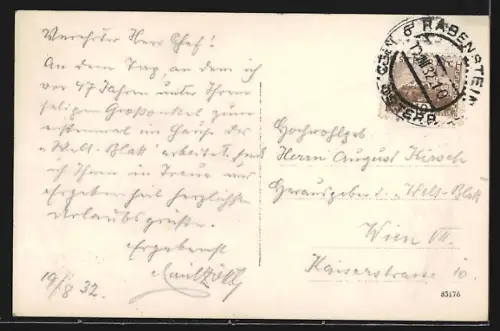 Verehrter Herr Chef!
An dem Tag, an dem ich
vor 47 Jahren unter Ihrem
seligen Großonkel zum
erstenmal im Hause des
"Welt-Blatt" arbeitete, sende
ich Ihnen in Treue und
Ergebenheit herzlichste
Urlaubsgrüße.
Ergebenst
Emil
19/8 32.
RABENSTEIN
ÖSTERR.
Hochwohlgeb.
Herrn August Kirsch
Herausgeber d. "Welt-Blatt"
Wien VII.
Kaiserstrasse 10.
85176